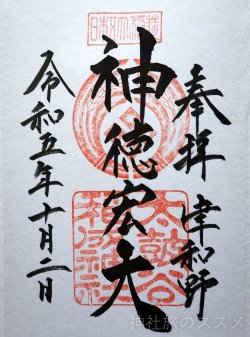 奉拝 津和野
神徳宏大
令和五年十月二日
日本五大稲荷
太皷谷稲成神社
神社旅のススメ